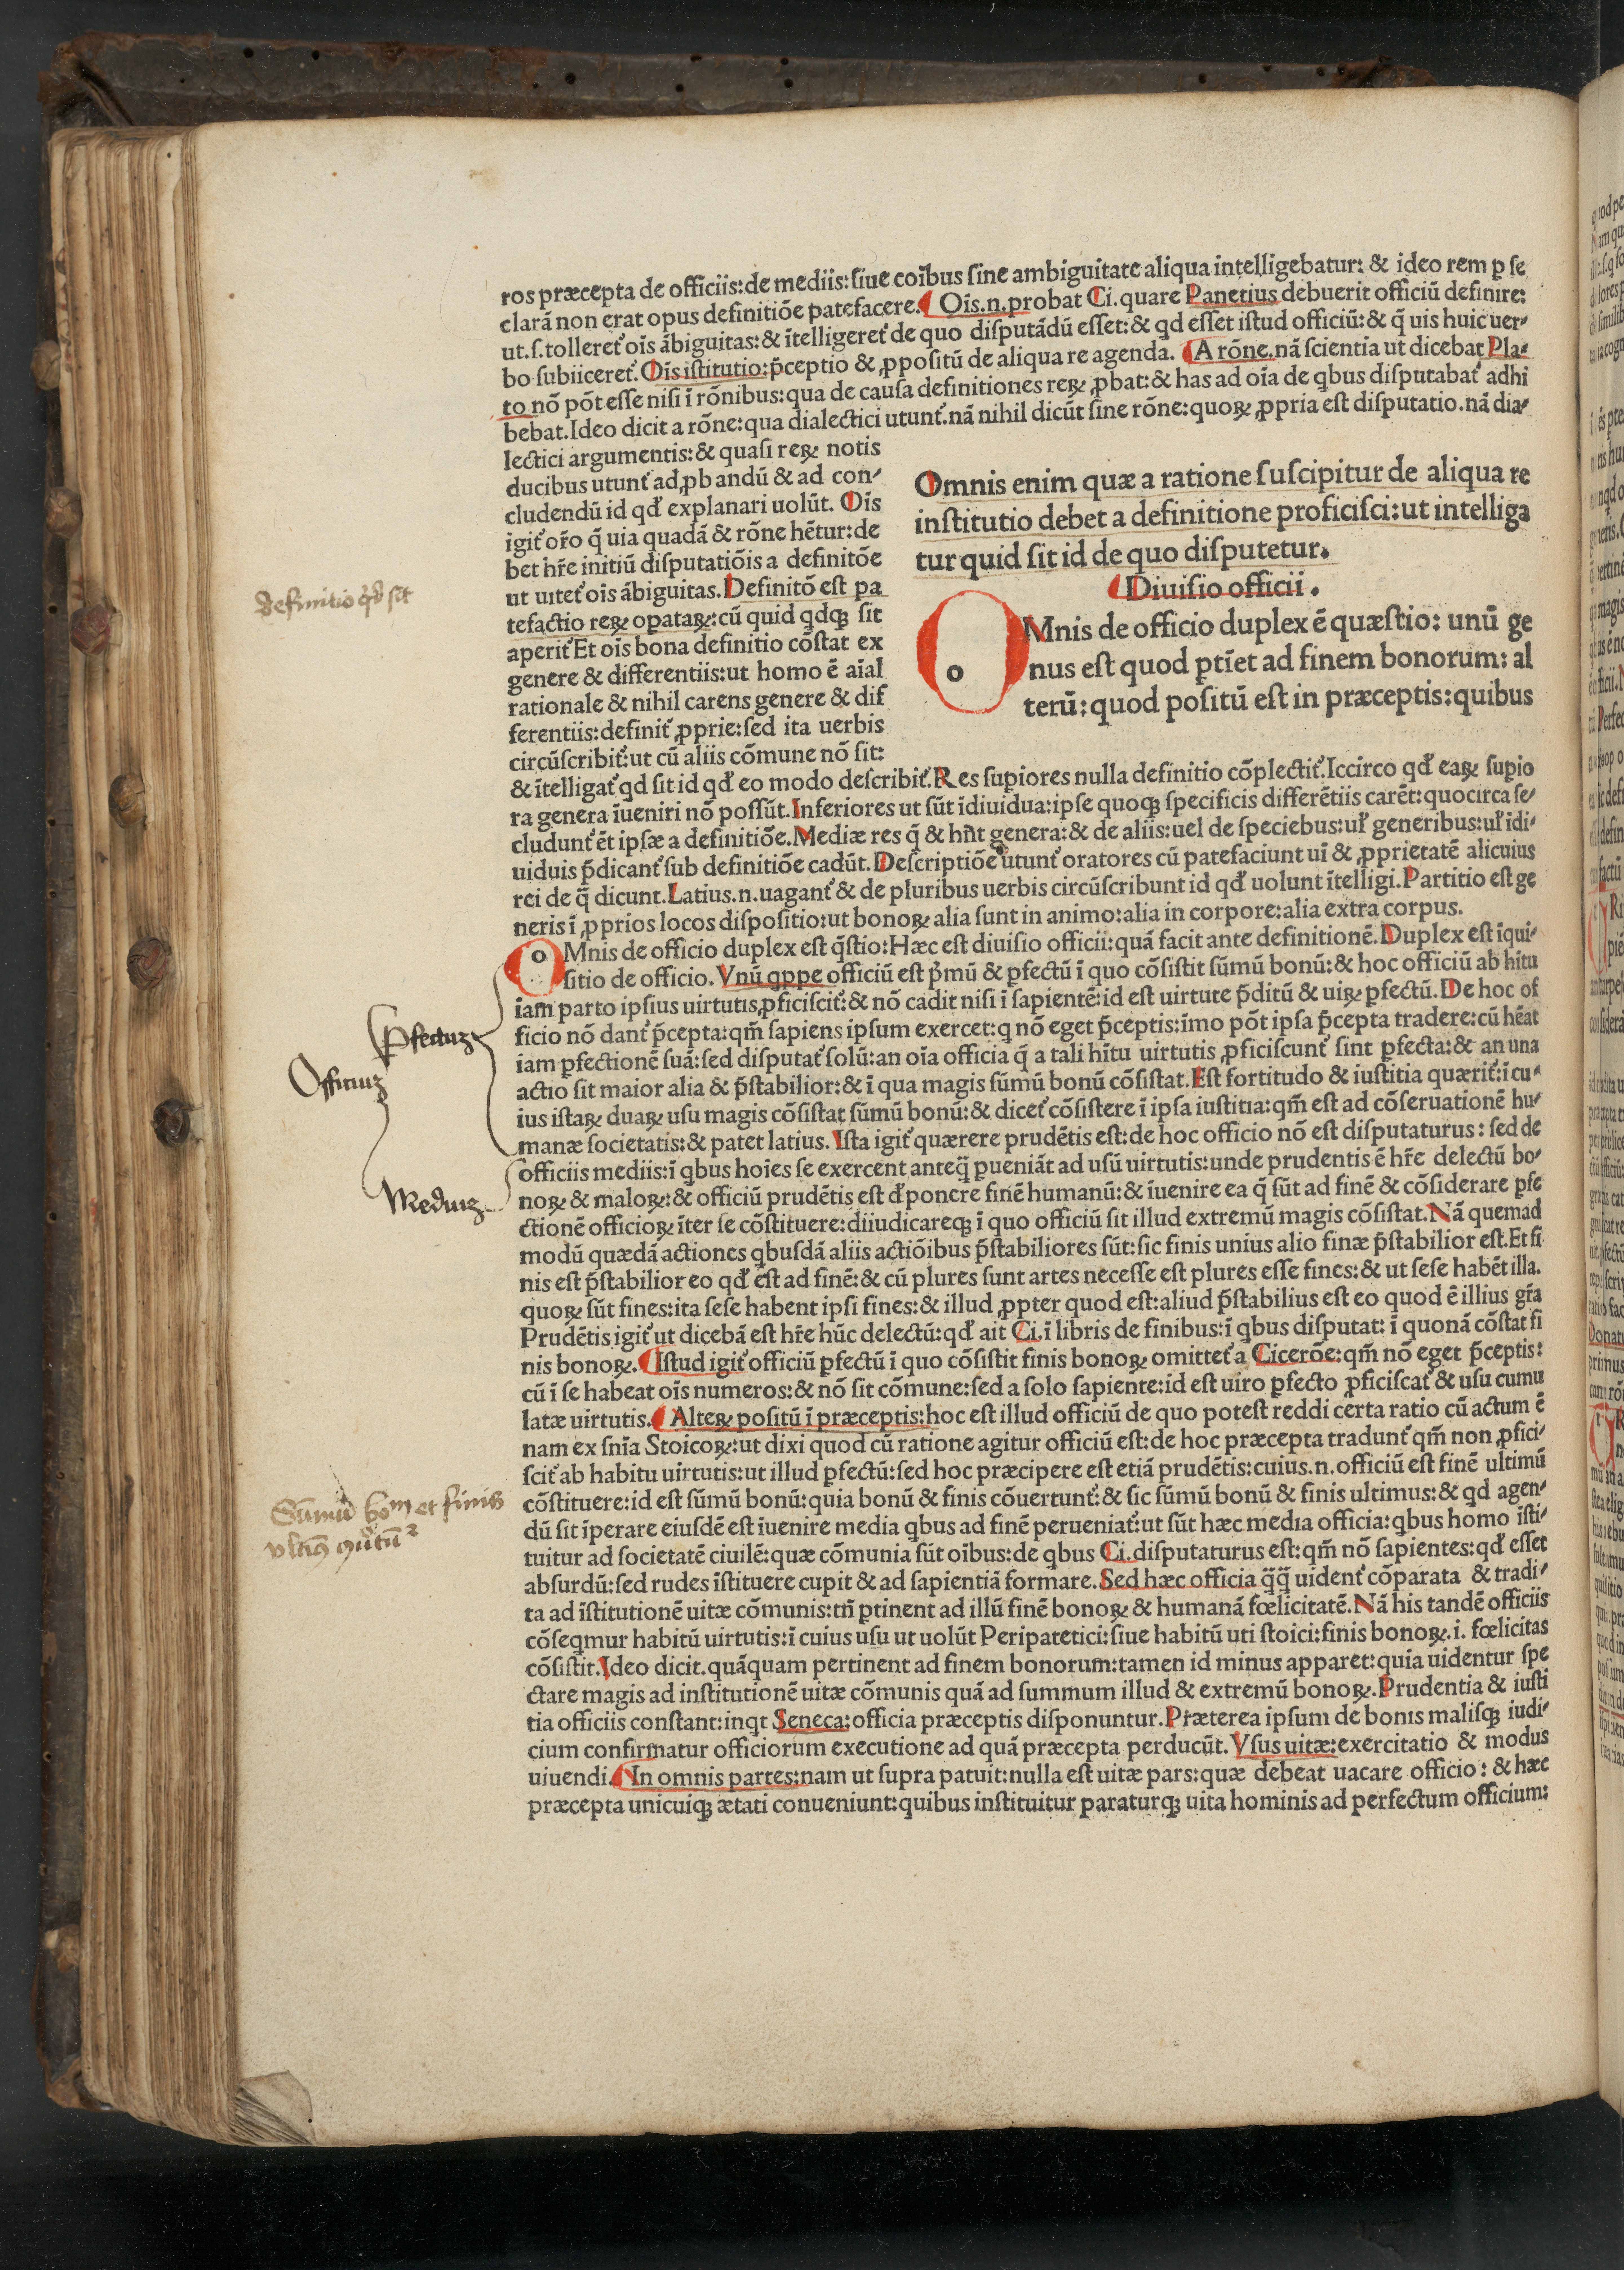 ros præcepta de officiis:de mediis:siue coībus sine ambiguitate aliqua intelligebatur: & ideo rem p̱ se
clarā non erat opus definitiōe patefacere. Oīs.n.probat Ci.quare Panetius debuerit officiū definire:
ut.s.tolleret᷑ oīs ābiguitas:& ītelligeret᷑ de quo disputādū esset:& qd esset istud officiū:& q̄ uis huic uer-
bo subiiceret᷑. Oīs īstitutio:p̄ceptio & ꝓpositū de aliqua re agenda. A rōne.nā scientia ut dicebat Pla-
to nō pōt esse nisi ī rōnibus:qua de causa definitiones reꝝ ꝓbat:& has ad oīa de qbus disputabat᷑ adhi
bebat.Ideo dicit a rōne:qua dialectici utunt᷑.nā nihil dicūt sine rōne:quoꝝ ꝓpria est disputatio.nā dia-
lectici argumentis:& quasi reꝝ notis
ducibus utunt᷑ ad ꝓbandū & ad con-
cludendū id qđ explanari uolūt. Oīs
igit᷑ oro q̄ uia quadā & rōne hētur:de
bet hr̄e initiū disputatiōis a definitōe
ut uitet᷑ oīs ābiguitas.Definitō est pa
tefactio reꝝ opataꝝ:cū quid qdqꝫ sit
aperit᷑ Et oīs bona definitio cōstat ex
genere & differentiis:ut homo ē aīal
rationale & nihil carens genere & dif
ferentiis:definit᷑ ꝓprie:sed ita uerbis
circūscribit᷑:ut cū aliis cōmune nō sit:
Omnis enim quæ a ratione suscipitur de aliqua re
institutio debet a definitione proficisci:ut intelliga
tur quid sit id de quo disputetur.
Diuisio officii.
o
Mnis de officio duplex ē quæstio: unū ge
nus est quod ptīet ad finem bonorum: al
terū:quod positū est in præceptis:quibus
& ītelligat᷑ qd sit id qđ eo modo describit᷑.Res supiores nulla definitio cōplectit᷑.Iccirco qđ eaꝝ supio
ra genera īueniri nō possūt.Inferiores ut sūt īdiuidua:ipse quoqꝫ specificis differētiis carēt:quocirca se-
cludunt᷑ ēt ipsæ a definitiōe.Mediæ res q̄ & hn̄t genera:& de aliis:uel de speciebus:uł generibus:uł idi-
uiduis p̄dicant᷑ sub definitiōe cadūt.Descriptiōe utunt᷑ oratores cū patefaciunt uī & ꝓprietatē alicuius
rei de q̄ dicunt.Latius.n.uagant᷑ & de pluribus uerbis circūscribunt id qđ uolunt ītelligi.Partitio est ge
neris ī ꝓprios locos dispositio:ut bonoꝝ alia sunt in animo:alia in corpore:alia extra corpus.
o
Mnis de officio duplex est q̄stio:Hæc est diuisio officii:quā facit ante definitionē.Duplex est īqui-
sitio de officio. Vnū qppe officiū est p̄mū & pfectū ī quo cōsistit sūmū bonū:& hoc officiū ab hītu
iam parto ipsius uirtutis ꝓficiscit᷑:& nō cadit nisi ī sapientē:id est uirtute p̄ditū & uiꝝ pfectū.De hoc of
ficio nō dant᷑ p̄cepta:qm̄ sapiens ipsum exercet:q nō eget p̄ceptis:īmo pōt ipsa p̄cepta tradere:cū hēat
iam pfectionē suā:sed disputat᷑ solū:an oīa officia q̄ a tali hītu uirtutis ꝓficiscunt᷑ sint pfecta:& an una
actio sit maior alia & p̄stabilior:& ī qua magis sūmū bonū cōsistat.Est fortitudo & iustitia quærit᷑:ī cu-
ius istaꝝ duaꝝ usu magis cōsistat sūmū bonū:& dicet᷑ cōsistere ī ipsa iustitia:qm̄ est ad cōseruationē hu-
manæ societatis:& patet latius. Ista igit᷑ quærere prudētis est:de hoc officio nō est disputaturus: sed de
officiis mediis:ī qbus hoīes se exercent anteq̄ pueniāt ad usū uirtutis:unde prudentis ē hr̄e delectū bo-
noꝝ & maloꝝ:& officiū prudētis est đponere finē humanū:& īuenire ea q̄ sūt ad finē & cōsiderare pfe
ctionē officioꝝ īter se cōstituere:diiudicareqꝫ ī quo officiū sit illud extremū magis cōsistat.Nā quemad
modū quædā actiones qbusdā aliis actiōibus p̄stabiliores sūt:sic finis unius alio finæ p̄stabilior est.Et fi
nis est p̄stabilior eo qđ est ad finē:& cū plures sunt artes necesse est plures esse fines:& ut sese habēt illa.
quoꝝ sūt fines:ita sese habent ipsi fines:& illud ꝓpter quod est:aliud p̄stabilius est eo quod ē illius gr̄a
Prudētis igit᷑ ut dicebā est hr̄e hūc delectū:qđ ait Ci.ī libris de finibus:ī qbus disputat: ī quonā cōstat fi
nis bonoꝝ. Istud igit᷑ officiū pfectū ī quo cōsistit finis bonoꝝ omittet᷑ a Cicerōe:qm̄ nō eget p̄ceptis:
cū ī se habeat oīs numeros:& nō sit cōmune:sed a solo sapiente:id est uiro pfecto ꝓficiscat᷑ & usu cumu
latæ uirtutis. Alteꝝ positū ī præceptis:hoc est illud officiū de quo potest reddi certa ratio cū actum ē
nam ex snīa Stoicoꝝ:ut dixi quod cū ratione agitur officiū est:de hoc præcepta tradunt᷑ qm̄ non ꝓfici-
scit᷑ ab habitu uirtutis:ut illud pfectū:sed hoc præcipere est etiā prudētis:cuius.n.officiū est finē ultimū
cōstituere:id est sūmū bonū:quia bonū & finis cōuertunt᷑:& sic sūmū bonū & finis ultimus:& qd agen-
dū sit īperare eiusdē est īuenire media qbus ad finē perueniat᷑:ut sūt hæc media officia:qbus homo īsti-
tuitur ad societatē ciuilē:quæ cōmunia sūt oībus:de qbus Ci.disputaturus est:qm̄ nō sapientes:qđ esset
absurdū:sed rudes īstituere cupit & ad sapientiā formare.Sed hæc officia q̄q̄ uident᷑ cōparata & tradi-
ta ad īstitutionē uitæ cōmunis:tn̄ ptinent ad illū finē bonoꝝ & humanā fœlicitatē.Nā his tandē officiis
cōseqmur habitū uirtutis:ī cuius usu ut uolūt Peripatetici:siue habitū uti stoici:finis bonoꝝ.i. fœlicitas
cōsistit.Ideo dicit.quāquam pertinent ad finem bonorum:tamen id minus apparet:quia uidentur spe
ctare magis ad institutionē uitæ cōmunis quā ad summum illud & extremū bonoꝝ.Prudentia & iusti
tia officiis constant:inqt Seneca:officia præceptis disponuntur.Præterea ipsum de bonis malisqꝫ iudi-
cium confirmatur officiorum executione ad quā præcepta perducūt. Vsus uitæ:exercitatio & modus
uiuendi. In omnis partes:nam ut supra patuit:nulla est uitæ pars:quæ debeat uacare officio: & hæc
præcepta unicuiqꝫ ætati conueniunt:quibus instituitur paraturqꝫ uita hominis ad perfectum officium:
definitio qd sit
Pfectuꝫ
Officiuꝫ
Mediuꝫ
Sūmū bom̄ et finis